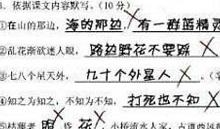 3. 依据课文内容默写。(10分)
①在山的那边，海的那边，有一群蓝精灵
②乱花渐欲迷人眼，路边野花不要踩
③七八个星天外，九十个外星人。
④知之为知之，不知为不知，打死也不知
⑤枯藤老树昏 花，小桥流水人家，古道西风